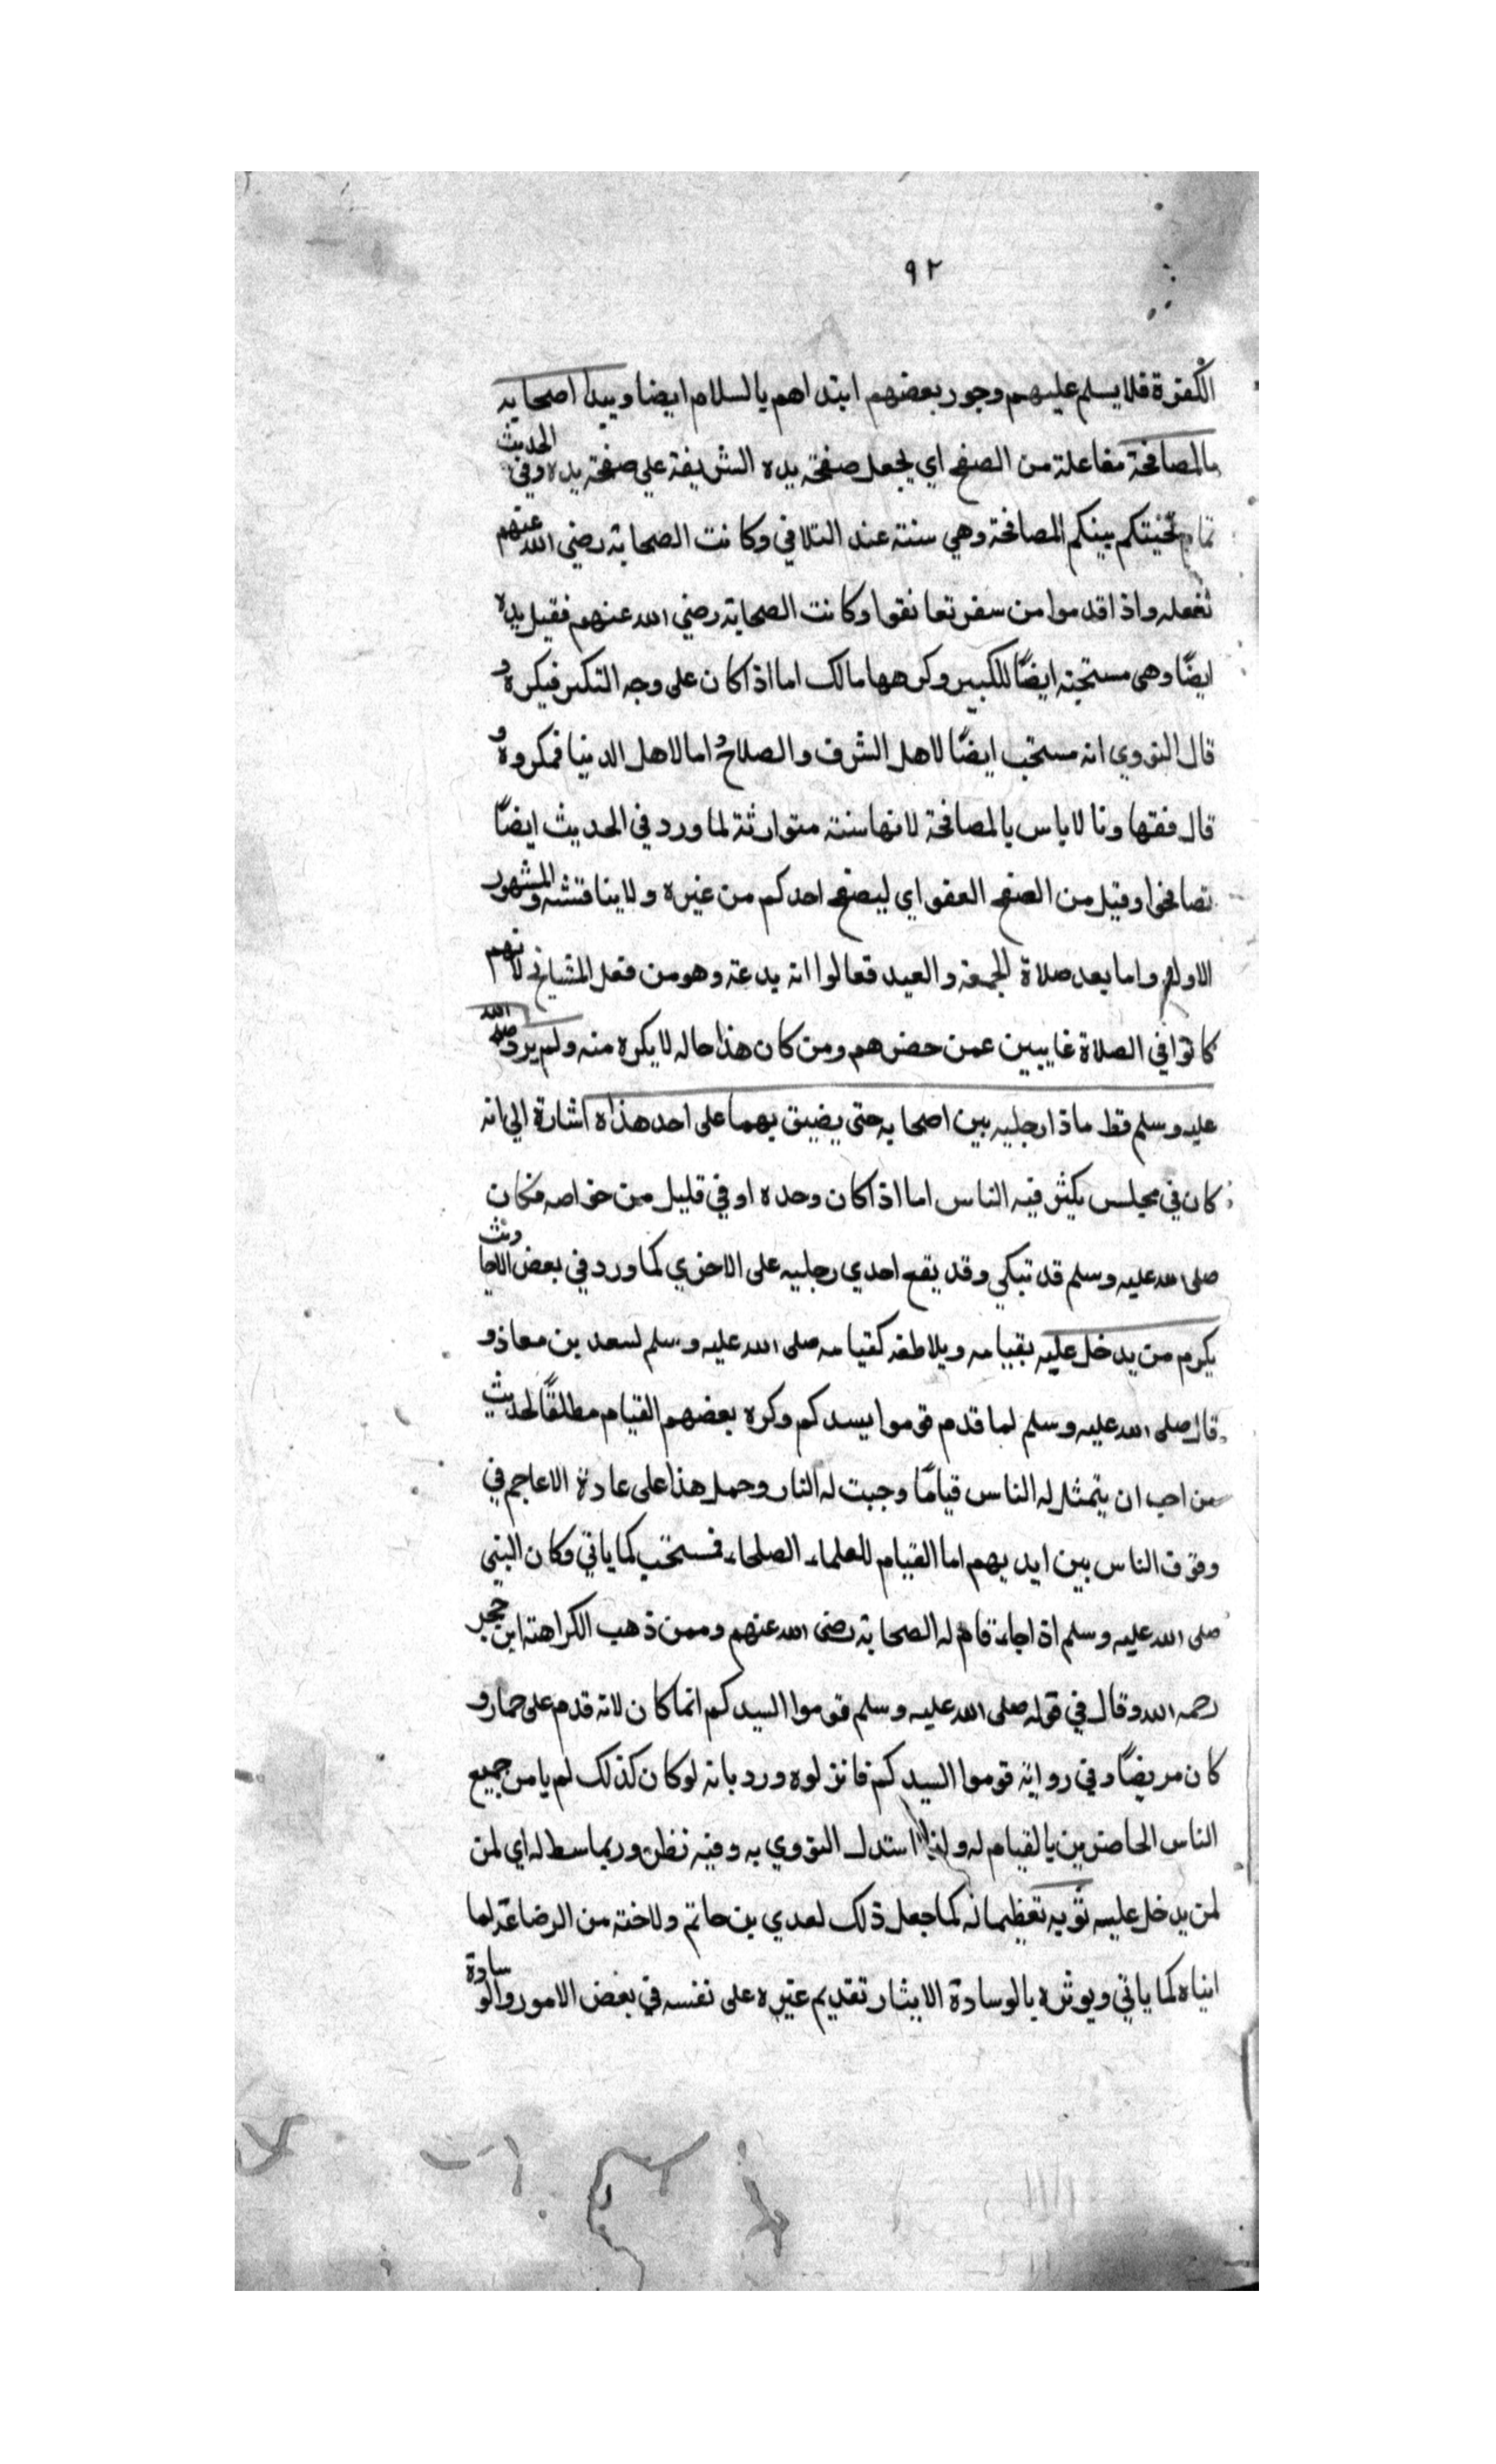 ٩٢
الكفرة فلا يسلم عليهم وجوز بعضهم ابتداهم بالسلام ايضا ويبدا اصحابه
بالمصافحة مفاعلة من الصفح اي يجعل صفحة يده الشريفة علي صفحة يده وفي الحديث
تمام تحيتكم بينكم المصافحة وهي سنة عند التلاقي وكانت الصحابة رضي الله عنهم
تفعله واذا قدموا من سفر تعانقوا وكانت الصحابة رضي الله عنهم فقبل يده
ايضًا وهى مستحبة ايضًا للكبير وكرهها مالك اما اذا كان على وجه التكبر فيكره
قال النووي انه مستحب ايضًا لاهل الشرف والصلاح اما لاهل الدنيا فمكروه
قال فقهاونا لا باس بالمصافحة لانها سنة متوارثة لما ورد في الحديث ايضًا
تصافحوا وقيل من الصفح العفو اي ليصفح احدكم من غيره ولا يناقشه والمشهور
الاول واما بعد صلاة الجمعة والعيد فقالوا انه بدعة وهو من فعل المشايخ لانهم
كانوا في الصلاة غايبين عمن حضرهم ومن كان هذا حاله لا يكره منه ولم ير صلى الله
عليه وسلم قط مادا رجليه بين اصحابه حتى يضيق بهما على احد هذاه اشارة الي انه
كان في مجلس يكثر فيه الناس اما اذا كان وحده او في قليل من خواصه فكان
صلى الله عليه وسلم قد تبكي وقد يقع احدي رجليه على الاخري كما ورد في بعض الاحاديث
يكرم من يدخل عليه بقيامه ويلاطفه كقيامه صلى الله عليه وسلم لسعد بن معاذ و
قال صلى الله عليه وسلم لما قدم قوموا يسدكم وكره بعضهم القيام مطلقًا لحديث
من احب ان يتمثل له الناس قيامًا وجبت له النار وحمل هذا على عادة الاعاجم في
وقوف الناس بين ايديهم اما القيام للعلماء الصلحاء فمستحب كما ياتي وكان النبي
صلى الله عليه وسلم اذا جاء قام له الصحابة رضى الله عنهم وممن ذهب الكراهة ابن حجر
رحمه الله وقال في قوله صلى الله عليه وسلم قوموا السيدكم انما كان لانه قدم على حمار و
كان مريضًا وفي رواية قوموا السيدكم فانزلوه ورد بانه لو كان كذلك لم يامر جميع
الناس الحاضرين بالقيام له ولهذا استدل النووي به وفيه نظر وربما بسط له اي لمن
لمن يدخل عليه ثوبه تعظيما له كما جعل ذلك لعدي بن حاتم ولاخته من الرضاعة لما
اتياه كما ياتي ويوثره بالوسادة الايثار تقديم غيره على نفسه في بعض الامور والوسادة